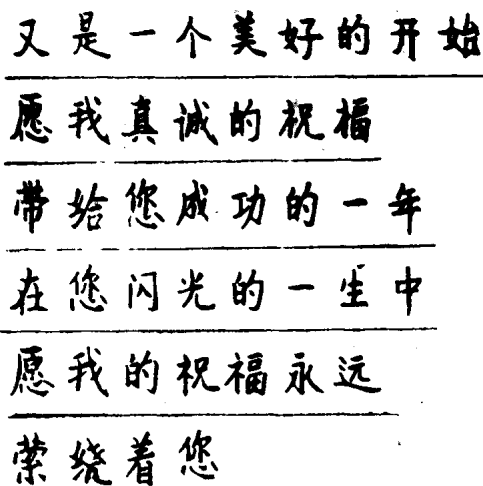 又是一个美好的开始
愿我真诚的祝福
带给您成功的一年
在您闪光的一生中
愿我的祝福永远
萦绕着您